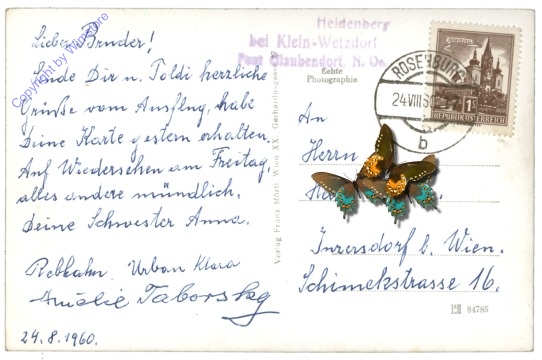 Lieber Bruder!
Sende Dir u. Toldi herzliche
Grüße vom Ausflug, habe
Deine Karte gestern erhalten.
Auf Wiedersehen am Freitag,
alles andere mündlich,
Deine Schwester Anna.
Rebhahn. Urban Klara
Amalie Taborsky
24.8.1960.
Copyright by Wifmstore
Verlag Franz Mörtl, Wien XX., Gerhardusgasse
Heldenberg
bei Klein-Wetzdorf
Post Glaubendorf, N. Oe.
Echte
Photographie
ROSENBURG
24.VIII.60
b
1S
REPUBLIK ÖSTERREICH
An
Herrn
Inzersdorf b. Wien.
Schimekstrasse 16.
84785